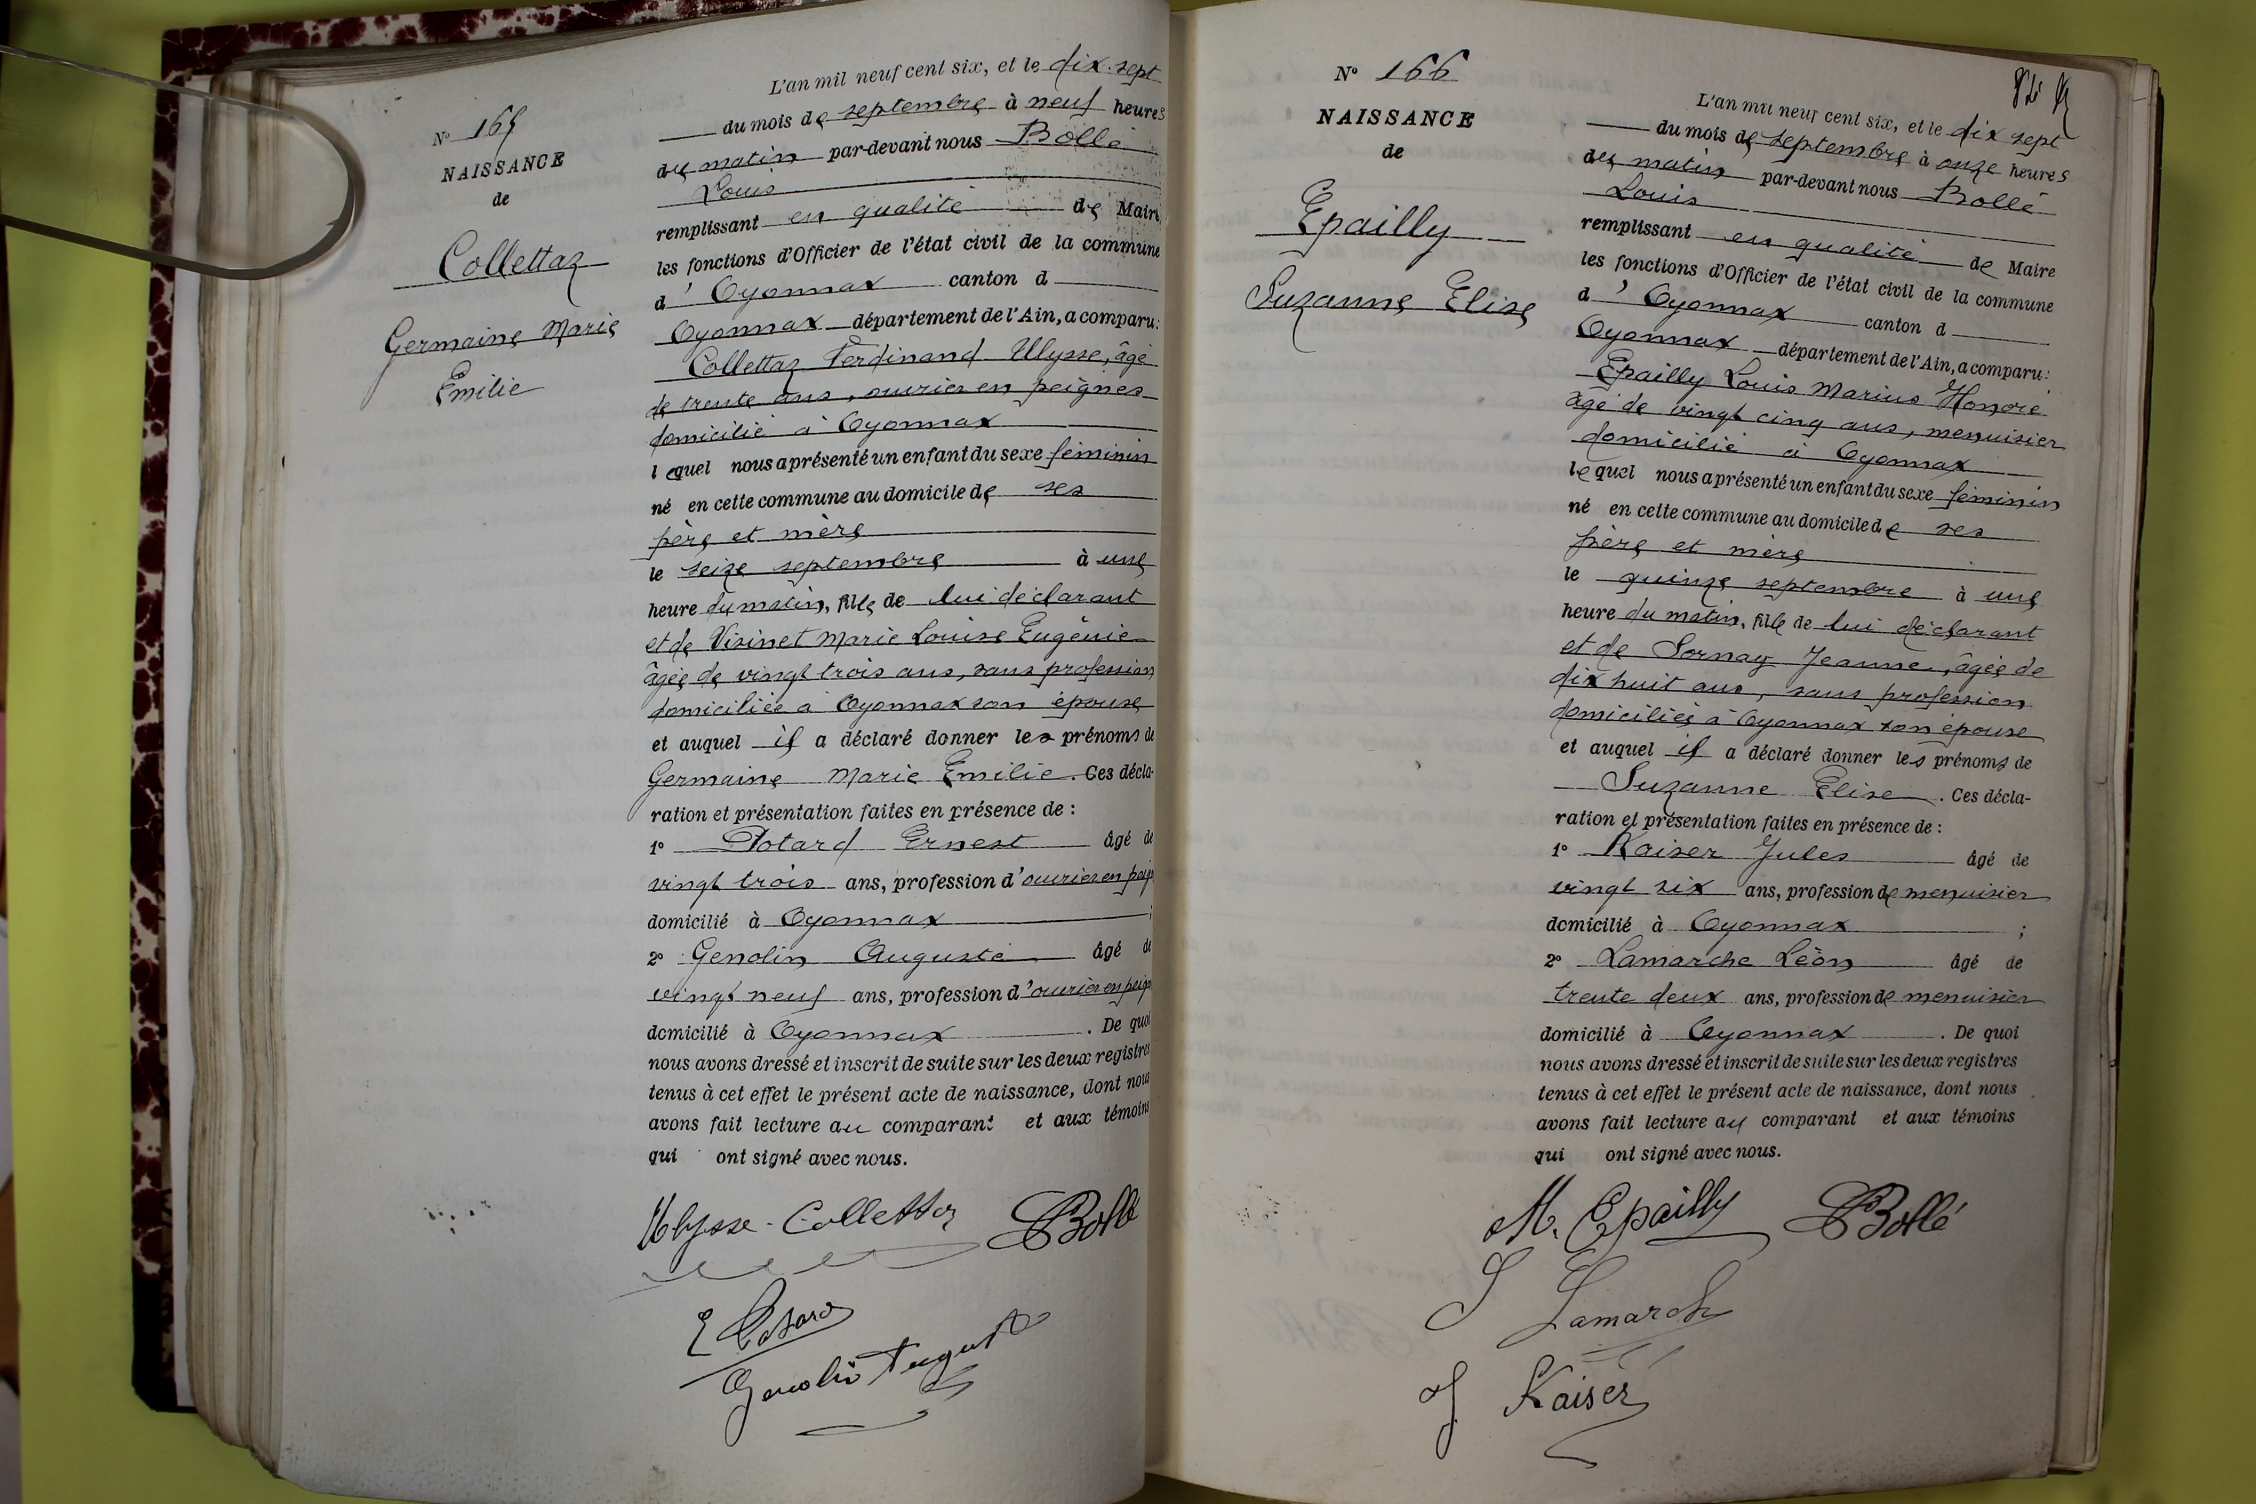 N° 165
NAISSANCE
de
Collettaz
Germaine Marie
Emilie
L'an mil neuf cent six, et le dix-sept
du mois de septembre à neuf heures
du matin par-devant nous Bollé
Louis
remplissant en qualité de Maire
les fonctions d'Officier de l'état civil de la commune
d'Oyonnax canton d
Oyonnax département de l'Ain, a comparu:
Collettaz Ferdinand Ulysse, âgé
de trente ans, ouvrier en peignes
domicilié à Oyonnax
lequel nous a présenté un enfant du sexe féminin
né en cette commune au domicile de ses
père et mère
le seize septembre à une
heure du matin, fille de lui déclarant
et de Visinet Marie Louise Eugénie
âgée de vingt trois ans, sans profession
domiciliée à Oyonnax son épouse
et auquel il a déclaré donner les prénoms de
Germaine Marie Emilie. Ces décla-
ration et présentation faites en présence de :
1° Potard Ernest âgé de
vingt trois ans, profession d'ouvrier en peig
domicilié à Oyonnax ;
2° Genolin Auguste âgé de
vingt neuf ans, profession d'ouvrier en peign
domicilié à Oyonnax . De quoi
nous avons dressé et inscrit de suite sur les deux registres
tenus à cet effet le présent acte de naissance, dont nous
avons fait lecture au comparant et aux témoins
qui ont signé avec nous.
Ulysse-Collettaz LBollé
E Potard
Genolin August
N° 166
NAISSANCE
de
Epailly
Suzanne Elise
L'an mil neuf cent six, et le dix sept
du mois de septembre à onze heures
du matin par-devant nous Bollé
Louis
remplissant en qualité de Maire
les fonctions d'Officier de l'état civil de la commune
d'Oyonnax canton d
Oyonnax département de l'Ain, a comparu:
Epailly Louis Marius Honoré
âgé de vingt cinq ans, menuisier
domicilié à Oyonnax
lequel nous a présenté un enfant du sexe féminin
né en cette commune au domicile de ses
père et mère
le quinze septembre à une
heure du matin, fille de lui déclarant
et de Sornay Jeanne, âgée de
dix huit ans, sans profession
domiciliée à Oyonnax son épouse
et auquel il a déclaré donner les prénoms de
Suzanne Elise . Ces décla-
ration et présentation faites en présence de :
1° Kaiser Jules âgé de
vingt six ans, profession de menuisier
domicilié à Oyonnax ;
2° Lamarche Léon âgé de
trente deux ans, profession de menuisier
domicilié à Oyonnax . De quoi
nous avons dressé et inscrit de suite sur les deux registres
tenus à cet effet le présent acte de naissance, dont nous
avons fait lecture au comparant et aux témoins
qui ont signé avec nous.
M. Epailly LBollé
Lamarch
J Kaiser